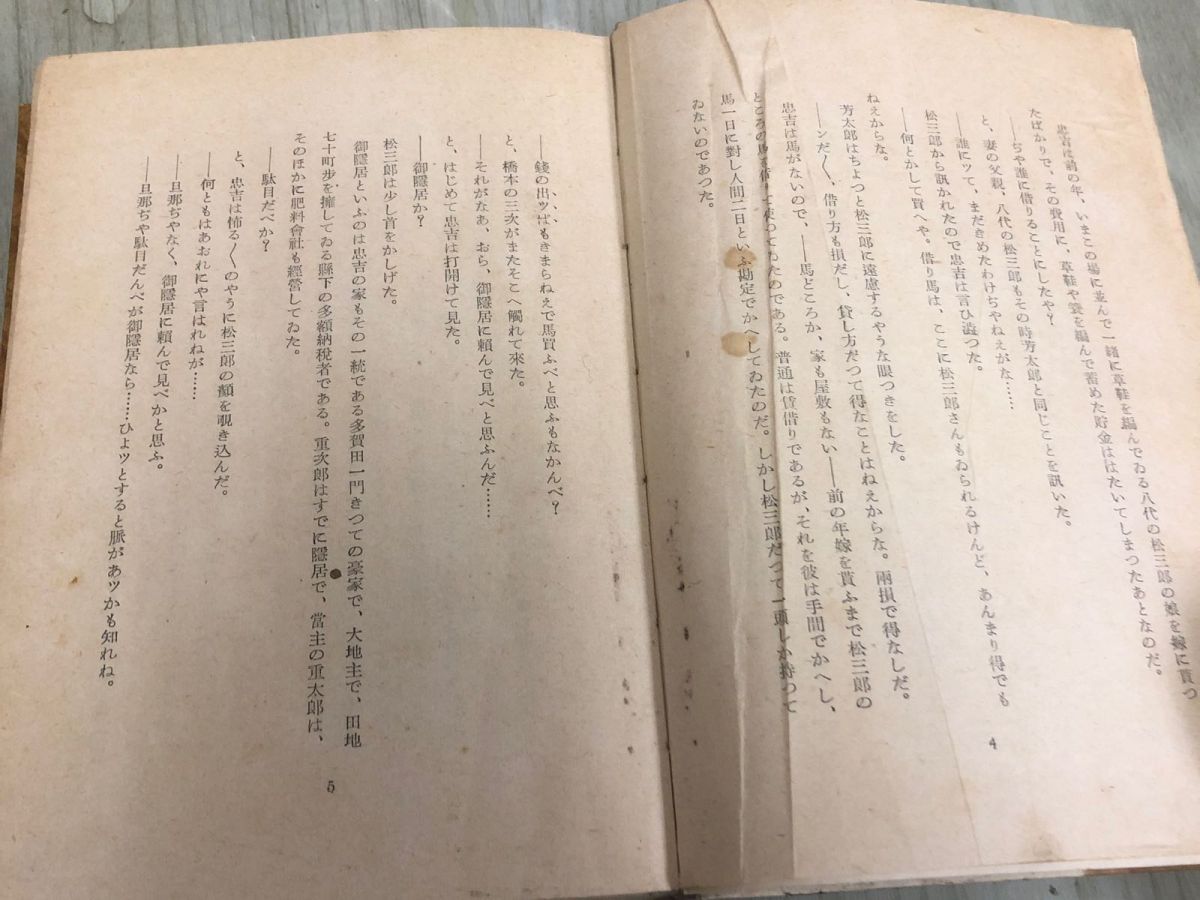 忠吉は前の年、いまこの場に並んで一緒に草鞋を編んでゐる八代の松三郎の娘を嫁に貰つ
たばかりで、その費用に、草鞋や蓑を編んで蓄めた貯金ははたいてしまつたあとなのだ。
――ぢや誰に借りることにしたや？
と、妻の父親、八代の松三郎もその時芳太郎と同じことを訊いた。
――誰にッて、まだきめたわけぢやねえがな……
松三郎から訊かれたので忠吉は言ひ澁つた。
――何とかして買へや。借り馬は、ここに松三郎さんもゐられるけんど、あんまり得でも
ねえからな。
芳太郎はちょつと松三郎に遠慮するやうな眼つきをした。
――ンだ〳〵、借り方も損だし、貸し方だつて得なことはねえからな。兩損で得なしだ。
忠吉は馬がないので、――馬どころか、家も屋敷もない――前の年嫁を貰ふまで松三郎の
ところの馬を借りて使つてゐたのである。普通は賃借りであるが、それを彼は手間でかへし、
馬一日に對し人間二日といふ勘定でかへしてゐたのだ。しかし松三郎だつて一頭しか持つて
ゐないのであつた。
4
――錢の出ッぱもきまらねえで馬買ふべと思ふもなかんべ？
と、橋本の三次がまたそこへ觸れて來た。
――それがなあ、おら、御隱居に頼んで見べと思ふんだ……
と、はじめて忠吉は打開けて見た。
――御隱居か？
松三郎は少し首をかしげた。
御隱居といふのは忠吉の家もその一統である多賀田一門きつての豪家で、大地主で、田地
七十町歩を擁してゐる縣下の多額納税者である。重次郎はすでに隱居で、當主の重太郎は、
そのほかに肥料會社も經營してゐた。
――駄目だべか？
と、忠吉は怖る〳〵のやうに松三郎の顏を覗き込んだ。
――何ともはあおれにや言はれねが……
――旦那ぢやなく、御隱居に頼んで見べかと思ふ。
――旦那ぢや駄目だんべが御隱居なら……ひょッとすると脈があッかも知れね。
5